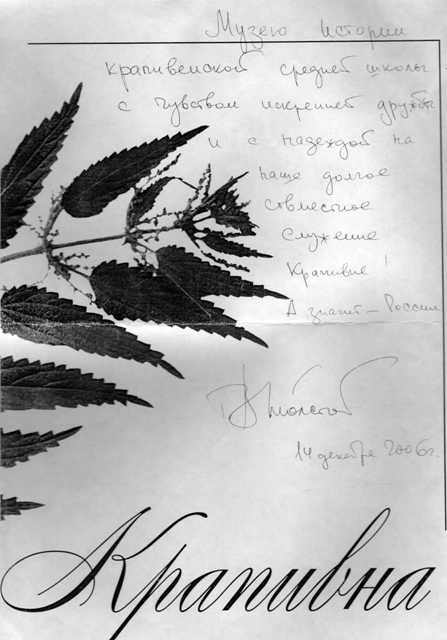 Музею истории
крапивенской средней школы
с чувством искренней дружбы
и с надеждой на
наше долгое
совместное
служение
Крапивне!
А значит – России
Толстой
14 декабря 2006г.
Крапивна